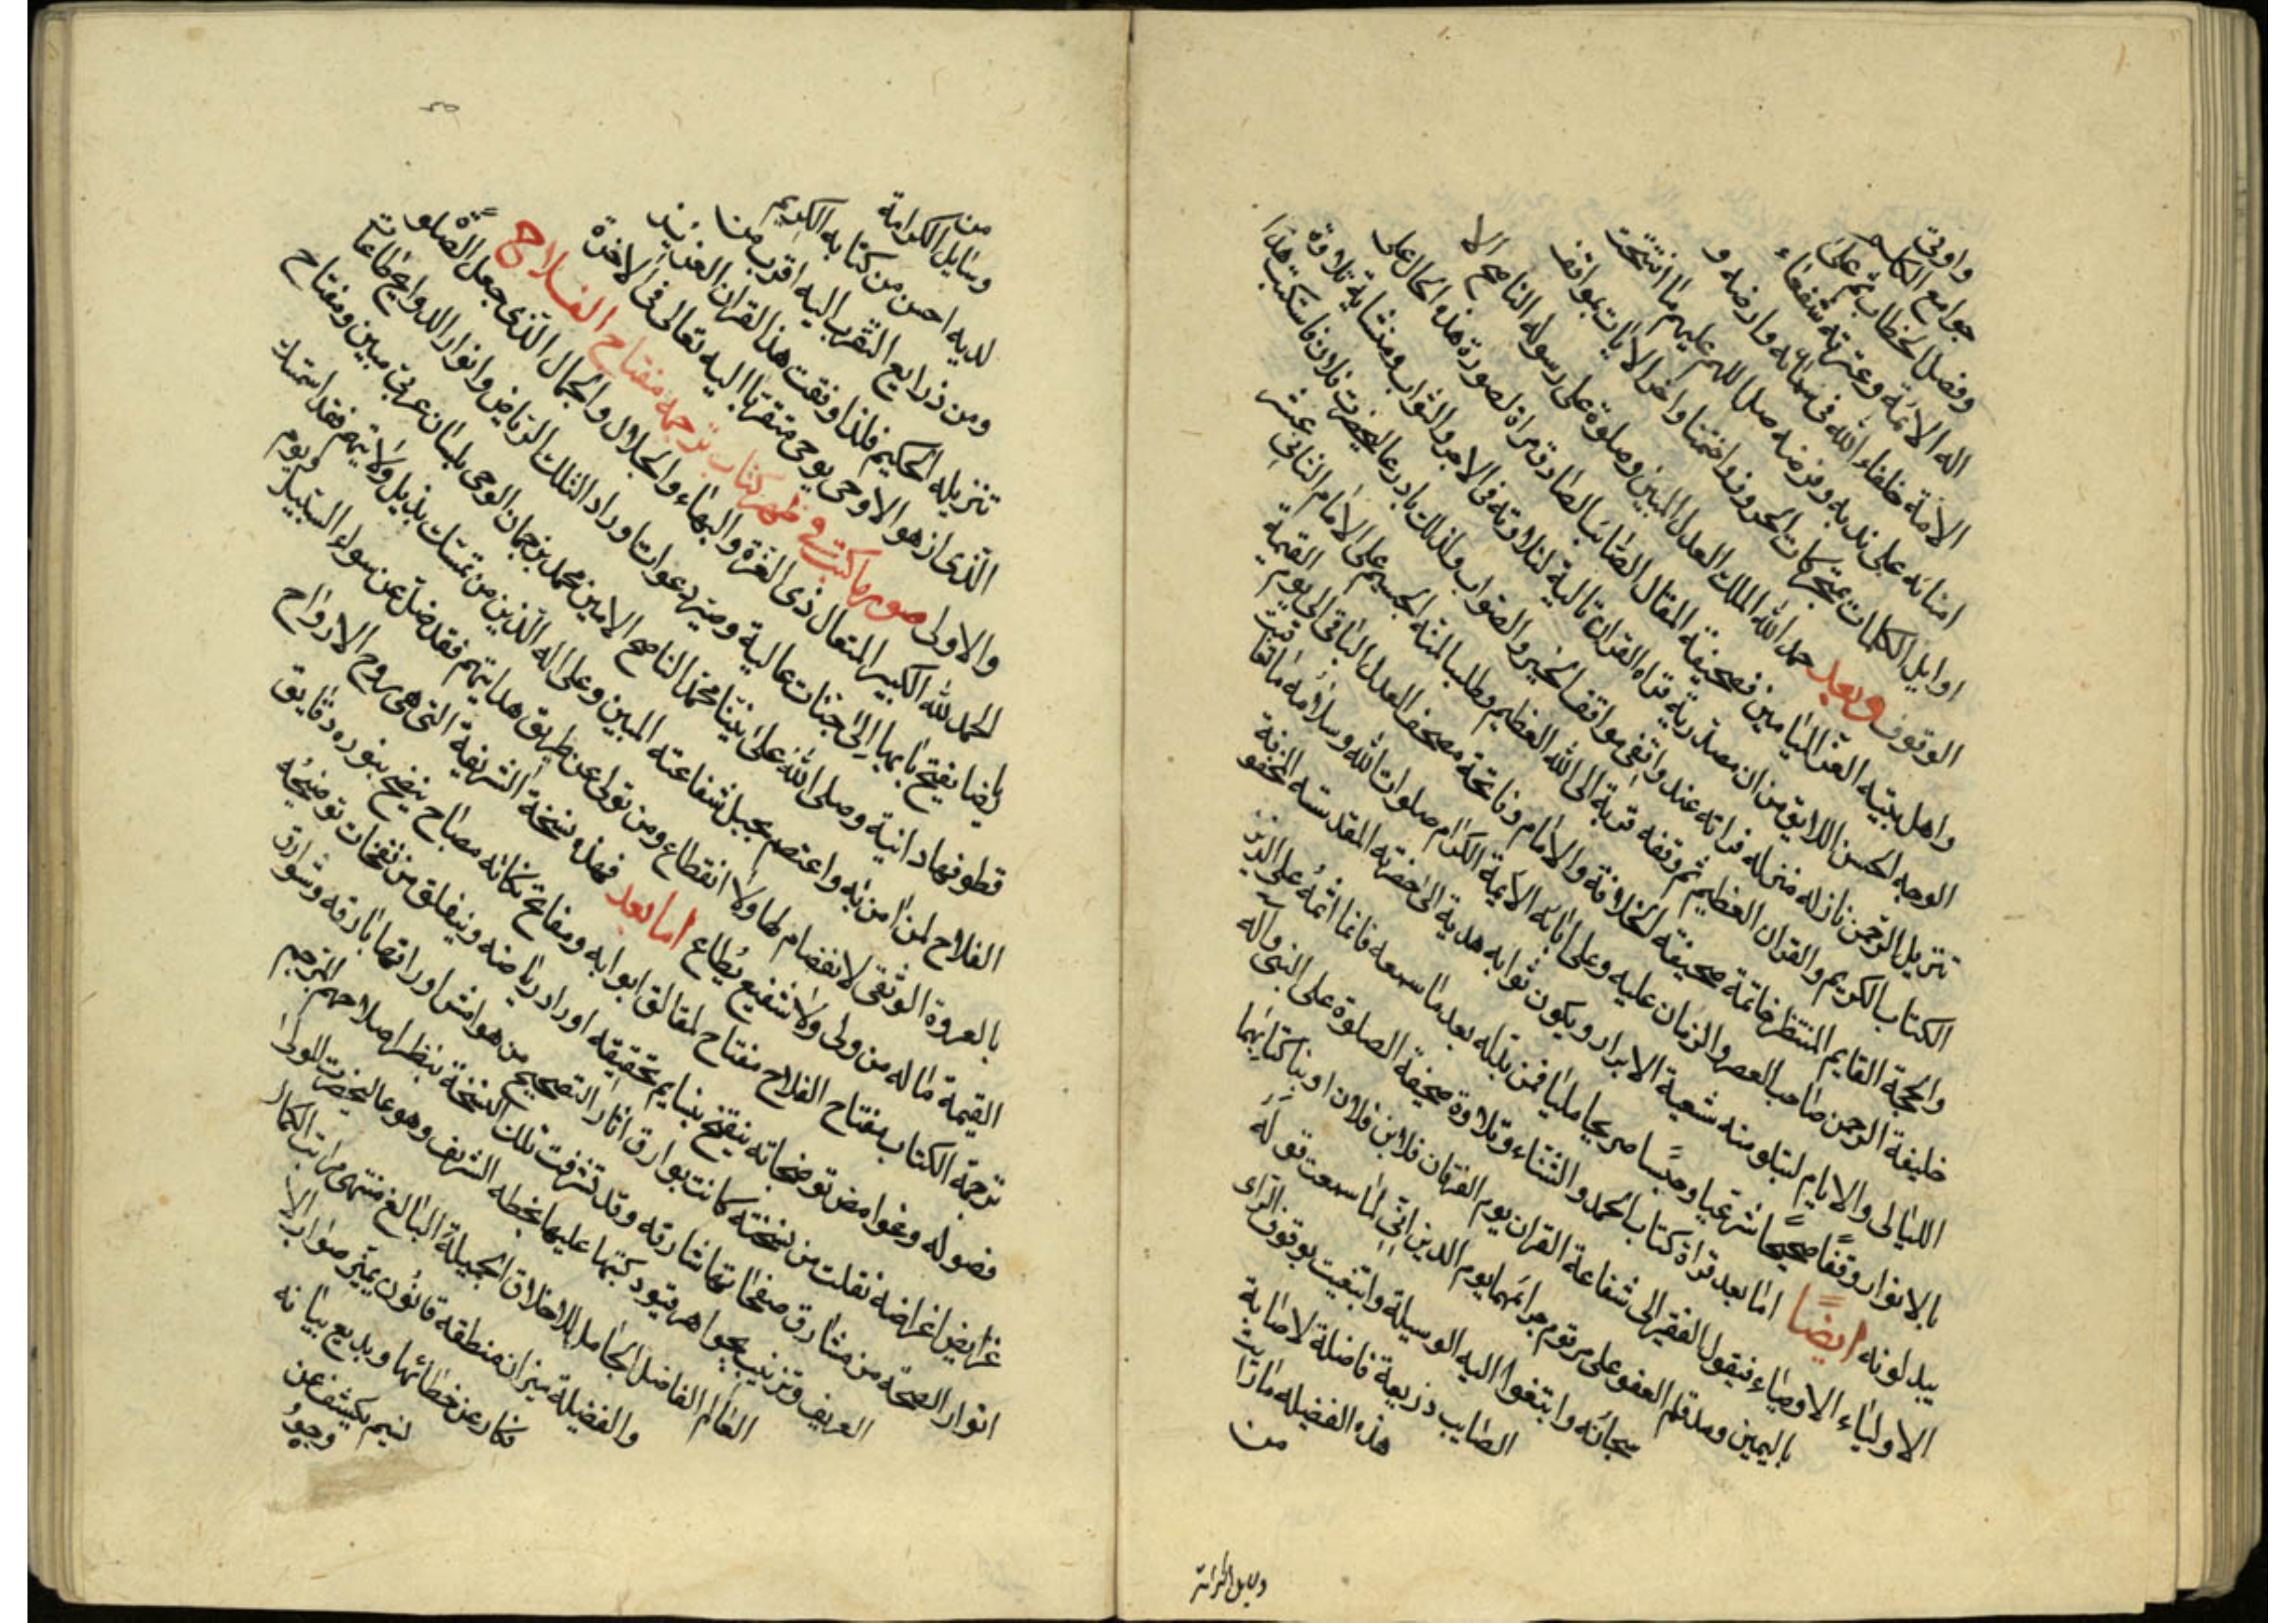 واوتى
جوامع الكلم
وفصل الخطاب ثم على
اله الائمة وعترته شفعاء
الامة خلفاء الله فى سمائه وارضه و
امنائه على ندبه وفرضه صل اللهم عليهم ما افتتحت
اوايل الكلمات بمتحركات الحروف واختتمنا واخر الايات بمواقف
الوقوف وبعد حمد الله الملك العدل المبين وصلوة على رسوله الناصح الا
واهل بيته الغر الميامين فصحيفة المقال الصائب الصادق مراة لصورة هذه الحال على
الوجه الحسن اللايق من ان مصدرية قراه القران تالية لتلاوته فى الاجر والثواب ومثابة تلاوة
تنزيل الرحمن نازله منزله قراته عند واقفى مواقف الخير والصواب ولذلك بادر عاليحضرت فلان فاستكتب هذا
الكتاب الكريم والقران العظيم ثم وقفه قربة الى الله العظيم وطلبا لمنه الجسيم على الامام الثانى عشر
والحجة القايم المنتظر خاتمة صحيفة الخلافة والامام وفاتحة مصحف العدل الباقى الى يوم القيمة
خليفة الرحمن صاحب العصر والزمان عليه وعلى ابائه الائمة الكرام صلوات الله وسلامه ما تعاقبت
الليالى والايام لتتلو منه شيعة الابرار ويكون ثوابه هدية الى حضرته المقدسته المحفوفة
بالانوار وقفا صحيحا شرعيا وحبسا صريحا مليا فمن بدله بعد ما سمعه فانما اثمه على الذين
يبدلونه ايضا اما بعد قراة كتاب الحمد والثناء وتلاوة صحيفة الصلوة على النبى واله
الاولياء الاوصياء فيقول الفقير الى شفاعة القران يوم الفرقان فلان ابن فلان اوتينا كتابهما
باليمين ومد قلم العفو على مرقوم جرائمهما يوم الدين انى لما سمعت قوله
سبحانه وابتغوا اليه الوسيلة وابتغيت بوقوف الراى
الصايب ذريعة فاضلة لاصابة
هذه الفضيله ما رايت
من
وسايل الكرامة
من
وسايل الكرامة
لديه احسن من كتابه الكريم
ومن ذرايع التقرب اليه اقرب من
تنزيله الحكيم فلذا وقفت هذا القران العزيز
الذى از هو الا وحى يوحى متقربا اليه تعالى فى الاخرة
والاولى صوره ما كتب فى ظهر كتاب ترجمه مفتاح الفلاح
الحمد لله الكبير المتعال ذى العزة والبهاء والجلال والجمال الذى جعل الصلوة
رياضا يفتح بابها الى جنات عالية وصير دعوات وراد التلك الرياض وانوار الدواجى طاعات
قطوفها دانية وصلى الله على نبينا محمد الناصح الامين محمد ترجمان الوحى بلسان عربى مبين ومفتاح
الفلاح لمن امن به واعتصم بحبل شفاعته المبين وعلى اله الذين من تمسك بذيل ولايتهم فقد استمسك
بالعروة الوثقى لا انفصام لها ولا انقطاع ومن تولى عن طريق هدايتهم فقد ضل عن سواء السبيل ويوم
القيمة ما له من ولى ولا شفيع يطاع اما بعد فهذه نسخة الشريفة التى هى روح الارواح
ترجمة الكتاب مفتاح الفلاح مفتاح لمغالق ابوابه ومفاتح نكاته مصباح يتضح بنوره دقايق
فصوله وغوامض توضيحاته يتفتح بنسايم تحقيقه اوراد رياضه وينفلق من نفحات توضيحه
غرايض اغراضه نقلت من نسخته كانت بوارق اثار التصحيح من هوامش اوراقها بارقه وشوارق
انوار الصحة من مشارق صفحاتها شارقه وقد تشرفت تلك النسخة بنظر اصلاحهم المترجم
العريف وتزينت بجواهر قيود كتبها عليها بخطه الشريف وهو عاليحضرت المولى
العالم الفاضل الجامل للاخلاق الجميلة البالغ منتهى مراتب الكمال
والفضيلة ميزان منطقه قانون يميز صواب الا
فكار عن خطائها وبديع بيانه
نسيم يكشف عن
وجوه